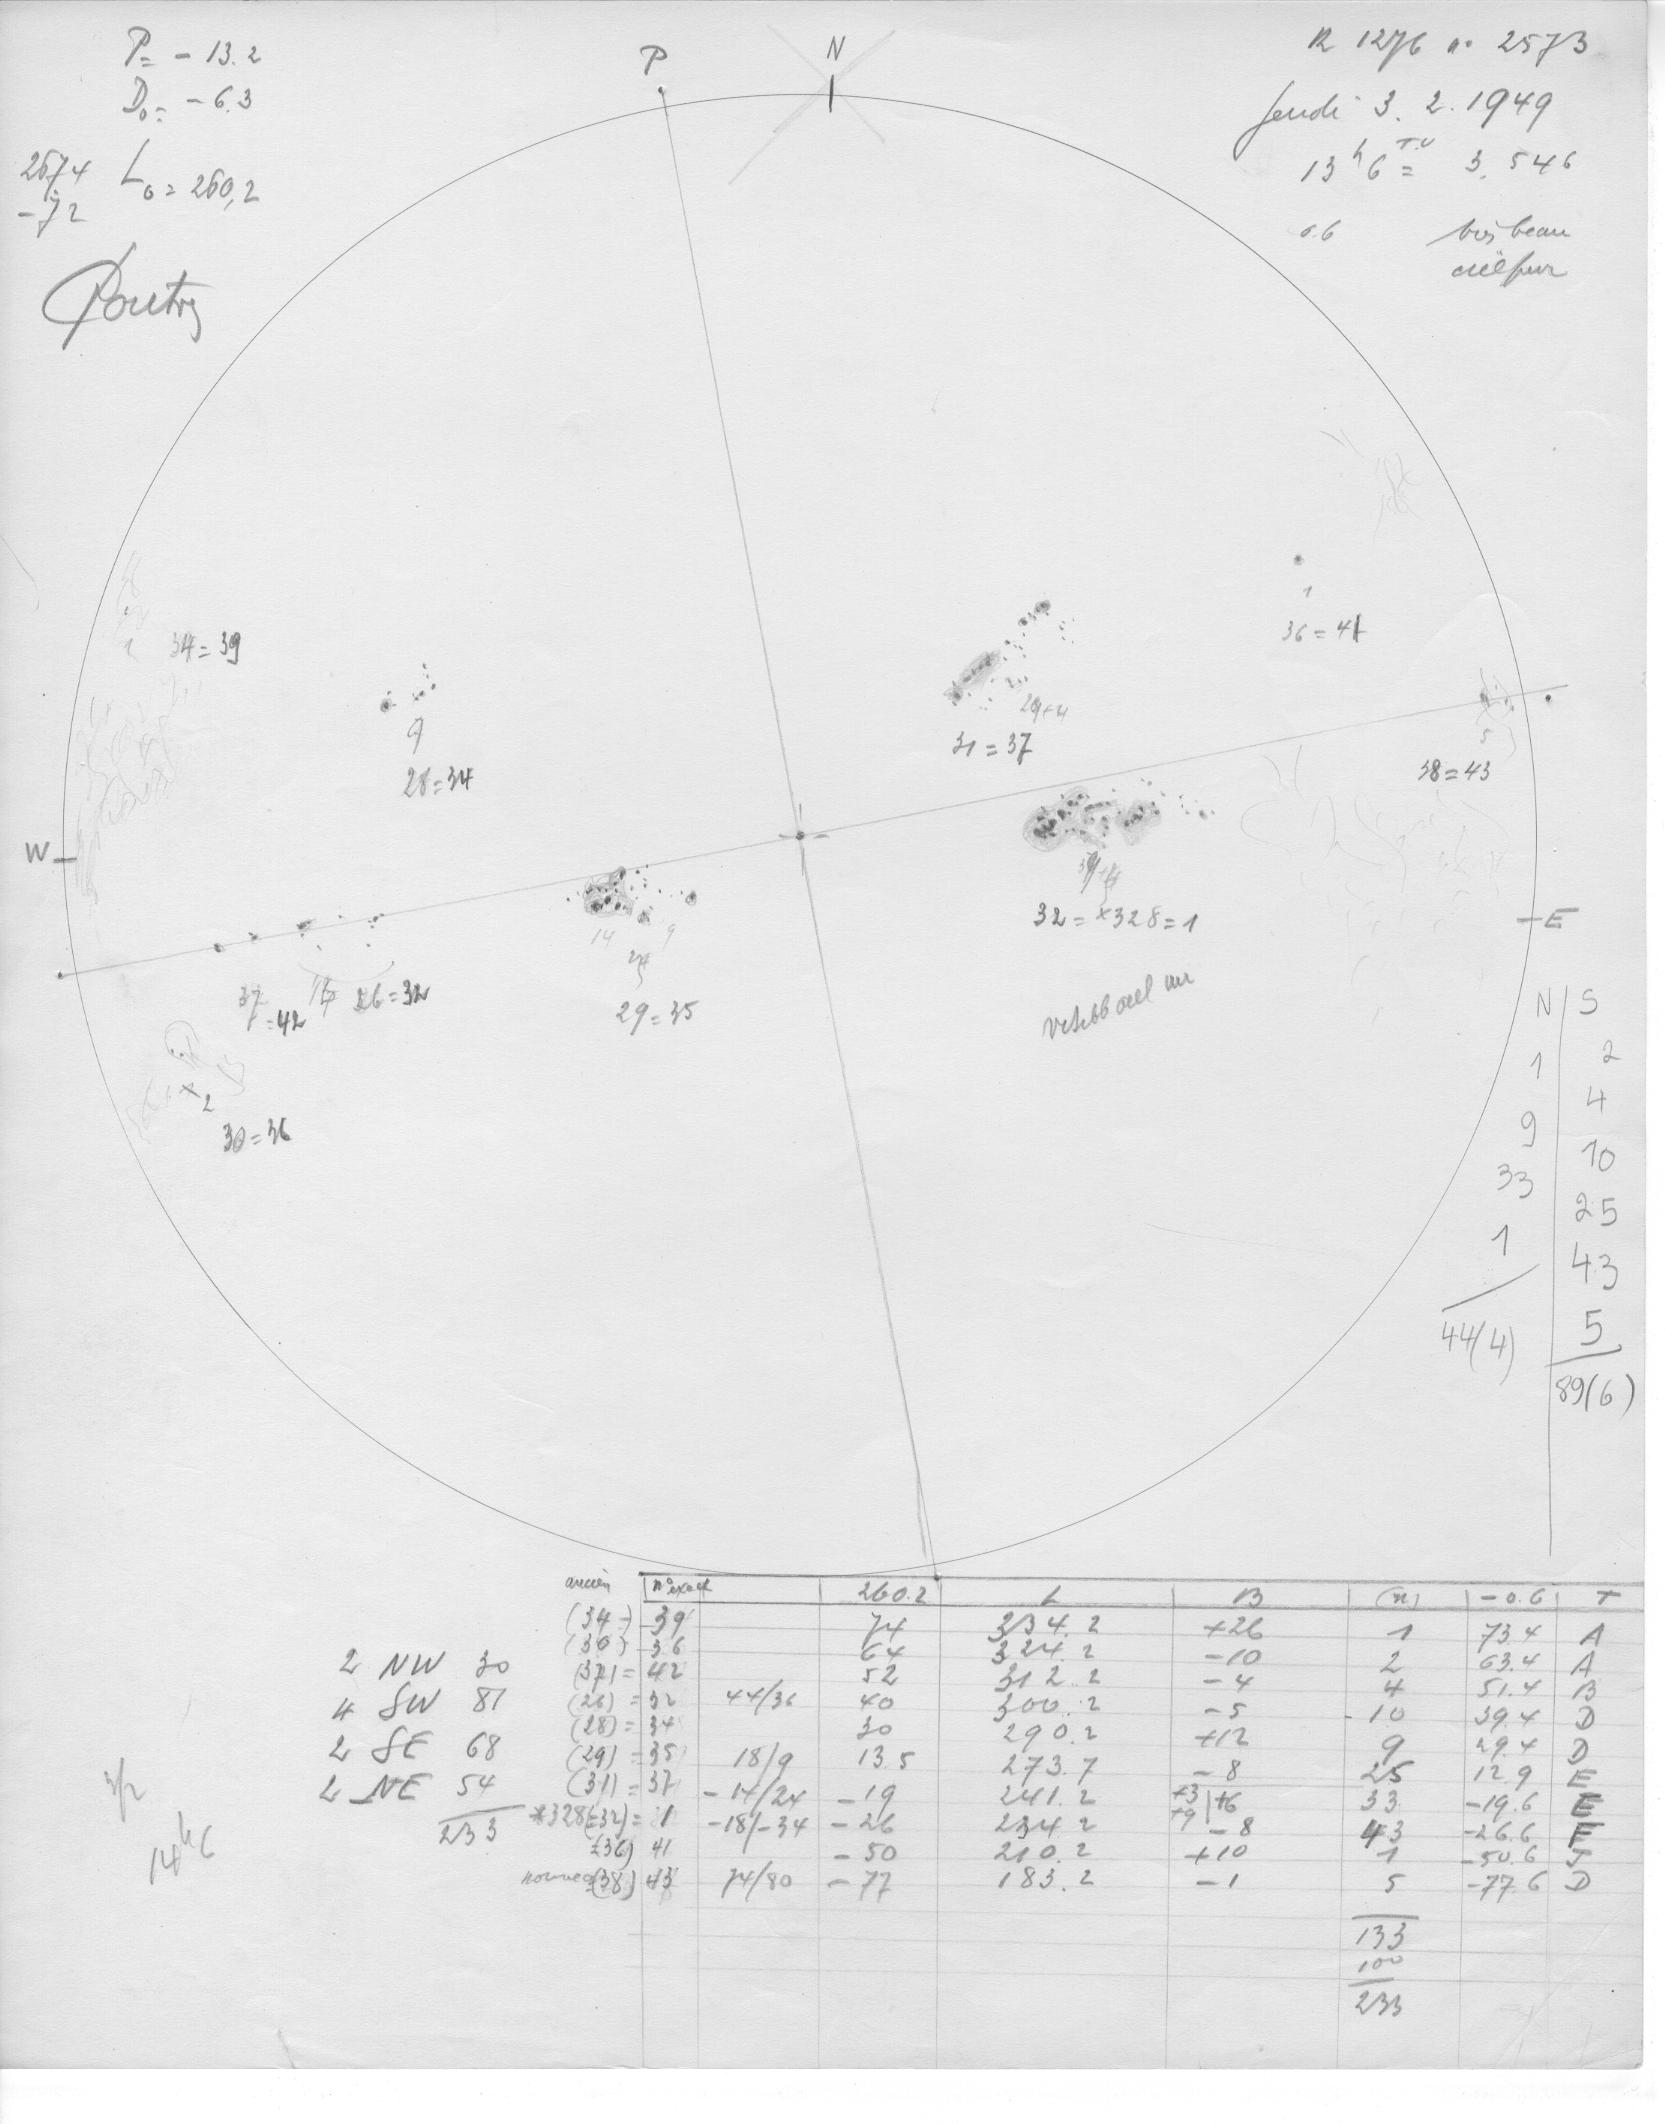 P = - 13.2
D₀ = - 6.3
L₀ = 260,2
2674
-72
P
N
R 1276 n° 2573
Jeudi 3. 2. 1949
13 h 6 T.U = 3. 546
très beau
ciel pur
34=39
1
9
28=34
29+4
31=37
1
36=41
5
38=43
W
E
37
=42
26=32
14
9
24
29=35
32= *328=1
2
30=36
N | S
1 2
9 4
33 10
1 25
43
5
44(4) 89(6)
ancien n° exact 260.2 L B (n) -0.6 T
(34-) 39 74 334.2 +26 1 73.4 A
(30) 36 64 324.2 -10 2 63.4 A
(37) = 42 52 312.2 -4 4 51.4 B
(26) = 32 44/36 40 300.2 -5 10 39.4 D
(28) = 34 30 290.2 +12 9 29.4 D
(29) = 35 18/9 13.5 273.7 -8 25 12.9 E
(31) = 37 -14/24 -19 241.2 +3 +9 | +6 33 -19.6 E
*328(=32) = 1 -18/-34 -26 234.2 -8 43 -26.6 F
(36) 41 -50 210.2 +10 1 -50.6 J
nouveau (38) 43 74/80 -77 183.2 -1 5 -77.6 D
133
100
233
2 NW 30
4 SW 81
2 SE 68
2 NE 54
233
14h6